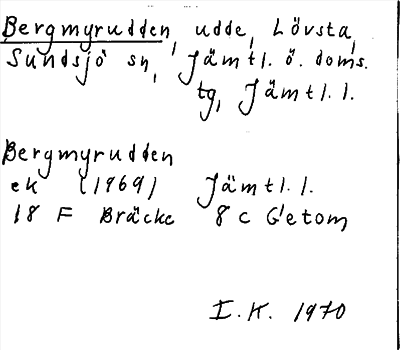 Bergmyrudden, udde, Lövsta,
Sundsjö sn, Jämtl. ö. doms.
tg, Jämtl. l.
Bergmyrudden
ek (1969) Jämtl. l.
18 F Bräcke 8 c Getom
I.K. 1970